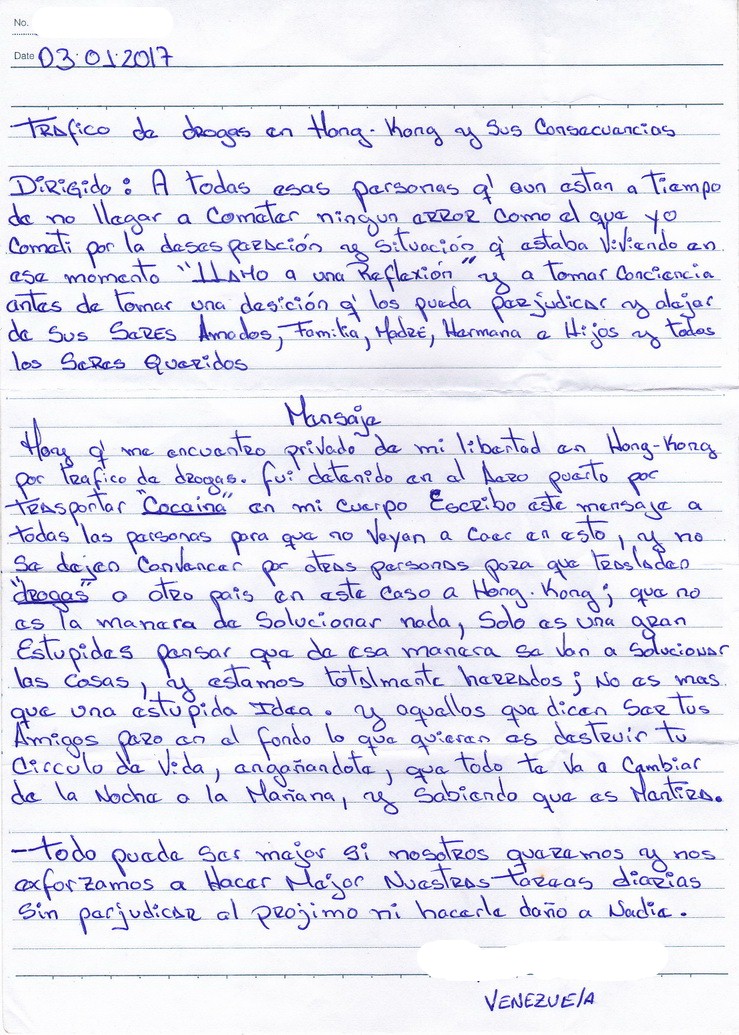 No.
Date 03.01.2017
Trafico de drogas en Hong-Kong y Sus Consecuencias
Dirigido: A todas esas personas q' aun estan a tiempo
de no llegar a Cometer ningun error como el que yo
Cometi por la desesparación y situación q' estaba Viviendo en
ese momento "LLAMO a una Reflexión" y a tomar Conciencia
antes de tomar una desición q' los pueda perjudicar y alejar
de Sus Seres Amados, Familia, Madre, Hermana e Hijos y todos
los Seres Queridos
Mensaje
Hoy q' me encuentro privado de mi libertad en Hong-Kong
por trafico de drogas. fui detenido en el Aero puerto por
transportar "Cocaina" en mi cuerpo Escribo este mensaje a
todas las personas para que no Vayan a Caer en esto, y no
Se dejen Convencer por otras personas para que trasladen
"drogas" a otro pais en este caso a Hong-Kong; que no
es la manera de Solucionar nada, Solo es una gran
Estupides pensar que de esa manera se van a Solucionar
las Cosas, y estamos totalmente herrados; No es mas
que una estupida Idea. y aquellos que dicen Ser tus
Amigos pero en el fondo lo que quieren es destruir tu
Circulo de Vida, engañandote, que todo te Va a Cambiar
de la Noche a la Mañana, y Sabiendo que es Mentira.
-todo puede Ser mejor Si nosotros queremos y nos
exforzamos a Hacer Mejor Nuestras tareas diarias
Sin perjudicar al projimo ni hacerle daño a Nadie.
VENEZUELA